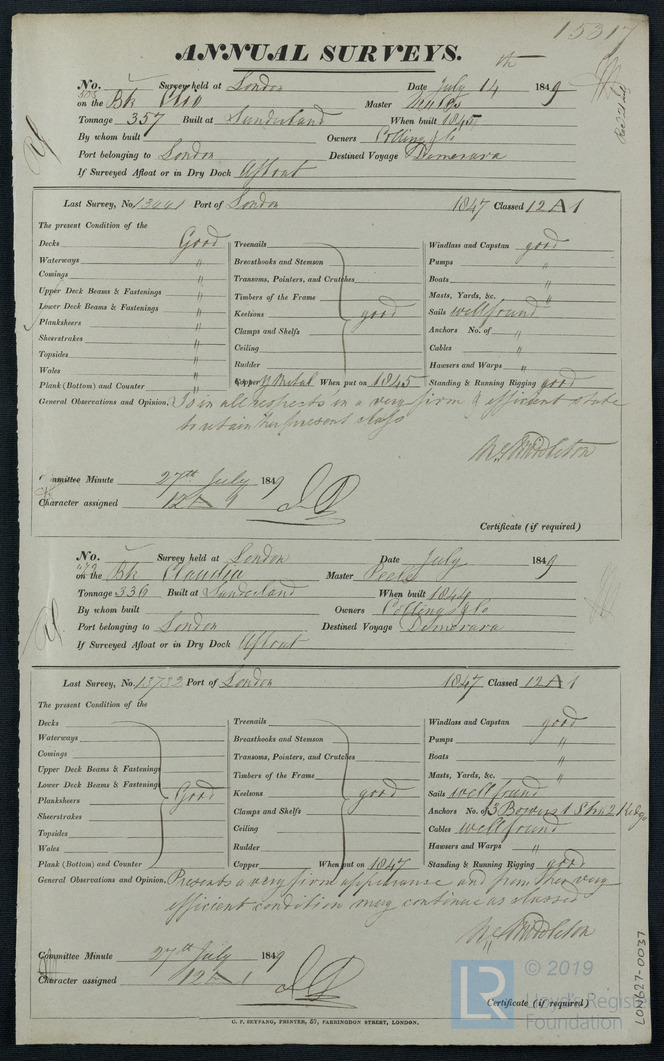 15317
ANNUAL SURVEYS.
No. Survey held at London Date July 14th 1849
on the Bk Clio Master
Tonnage 357 Built at Sunderland When built 1845
By whom built Owners Colling & Co
Port belonging to London Destined Voyage Demerara
If Surveyed Afloat or in Dry Dock Afloat
Last Survey, No. 13441 Port of London 1847 Classed 12 A 1
The present Condition of the
Decks Good
Waterways "
Comings "
Upper Deck Beams & Fastenings "
Lower Deck Beams & Fastenings "
Planksheers "
Sheerstrakes "
Topsides "
Wales "
Plank (Bottom) and Counter "
Treenails
Breasthooks and Stemson
Transoms, Pointers, and Crutches
Timbers of the Frame
Keelsons good
Clamps and Shelfs
Ceiling
Rudder
Copper Y Metal When put on 1845
Windlass and Capstan good
Pumps "
Boats "
Masts, Yards, &c. "
Sails well found
Anchors No. of "
Cables "
Hawsers and Warps "
Standing & Running Rigging good
General Observations and Opinion, Is in all respects in a very firm & efficient state
to retain her present class
Committee Minute 27th July 1849
Character assigned 12 A 1
Certificate (if required)
No. Survey held at London Date July 1849
on the Bk Claudia Master
Tonnage 336 Built at Sunderland When built 1844
By whom built Owners Collings & Co
Port belonging to London Destined Voyage Demerara
If Surveyed Afloat or in Dry Dock Afloat
Last Survey, No. 13732 Port of London 1847 Classed 12 A 1
The present Condition of the
Decks
Waterways
Comings
Upper Deck Beams & Fastenings
Lower Deck Beams & Fastenings
Planksheers Good
Sheerstrakes
Topsides
Wales
Plank (Bottom) and Counter
Treenails
Breasthooks and Stemson
Transoms, Pointers, and Crutches
Timbers of the Frame
Keelsons good
Clamps and Shelfs
Ceiling
Rudder
Copper When put on 1847
Windlass and Capstan good
Pumps "
Boats "
Masts, Yards, &c. "
Sails well found
Anchors No. of 3 Bowers 1 Strm 2 Kedge
Cables well found
Hawsers and Warps "
Standing & Running Rigging good
General Observations and Opinion, Presents a very firm appearance and from her very
efficient condition may continue as classed
Committee Minute 27th July 1849
Character assigned 12 A 1
Certificate (if required)
C. F. SEYFANG, PRINTER, 57, FARRINGDON STREET, LONDON.
LON627-0037
LR © 2019
Lloyd's Register
Foundation